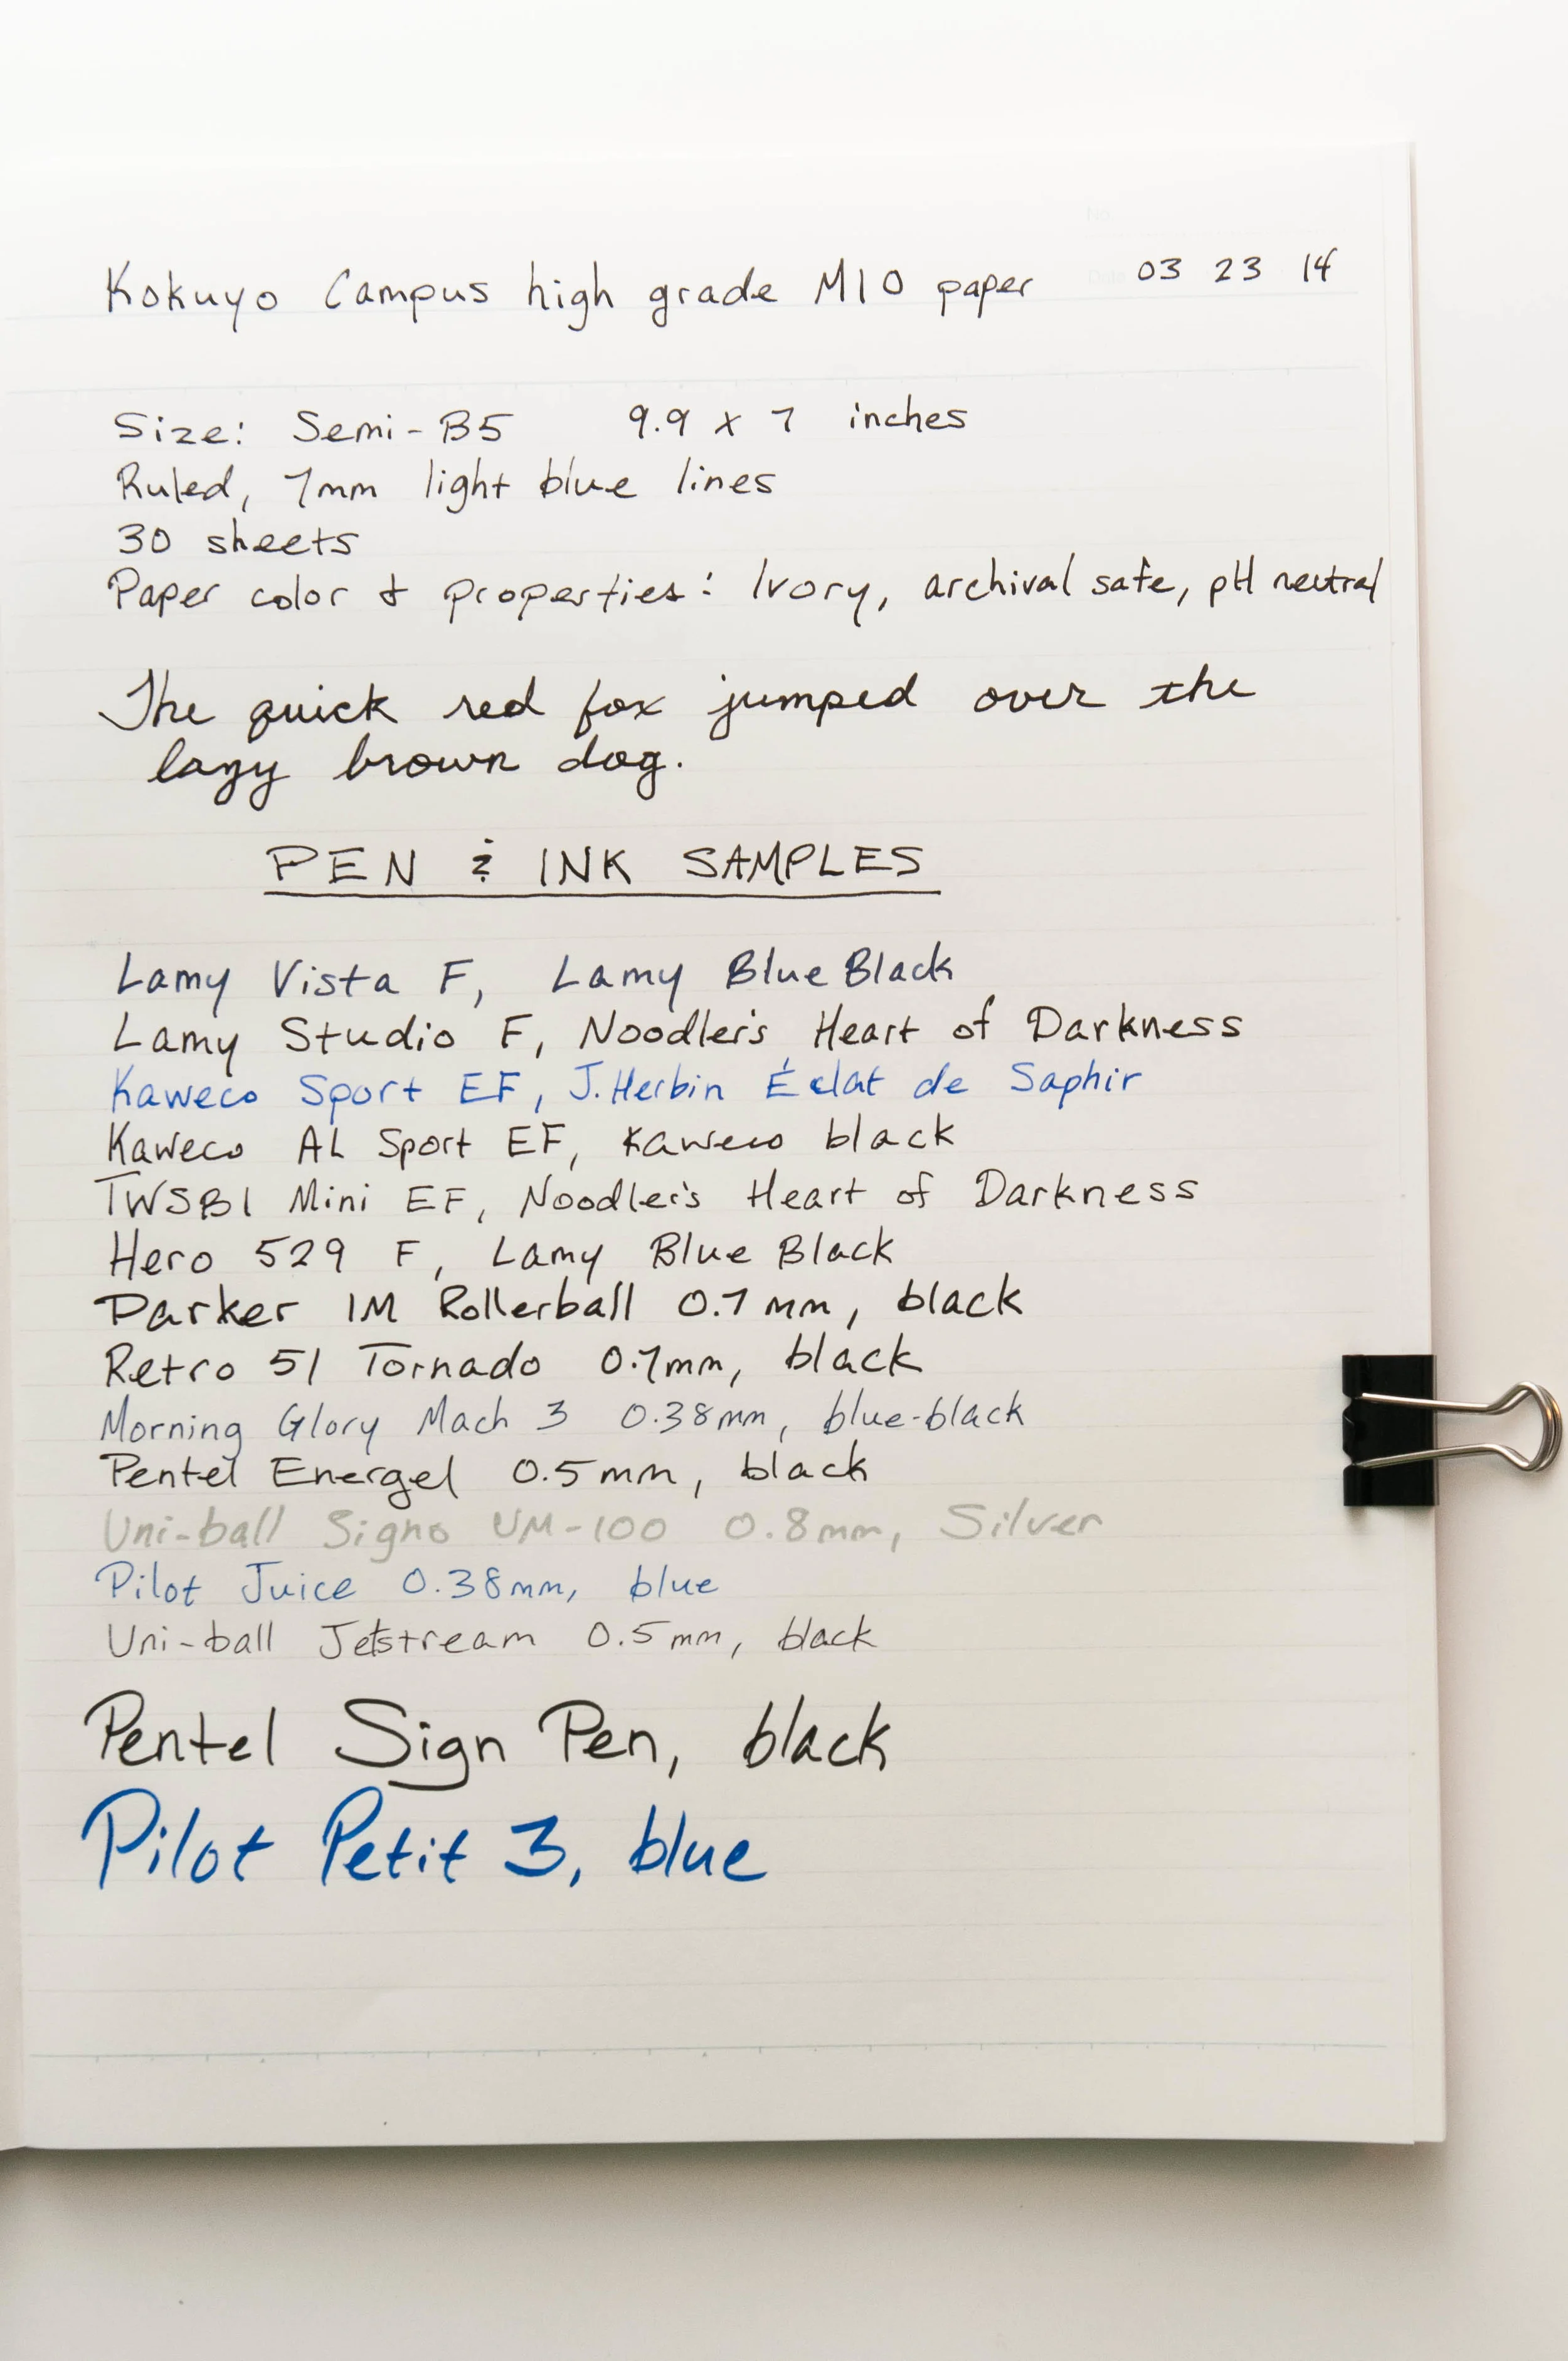 No.
Kokuyo Campus high grade M10 paper
Date 03 23 14
Size: Semi-B5 9.9 x 7 inches
Ruled, 7mm light blue lines
30 sheets
Paper color & properties: Ivory, archival safe, pH neutral
The quick red fox jumped over the
lazy brown dog.
PEN & INK SAMPLES
Lamy Vista F, Lamy Blue Black
Lamy Studio F, Noodler's Heart of Darkness
Kaweco Sport EF, J. Herbin Éclat de Saphir
Kaweco AL Sport EF, Kaweco black
TWSBI Mini EF, Noodler's Heart of Darkness
Hero 529 F, Lamy Blue Black
Parker IM Rollerball 0.7mm, black
Retro 51 Tornado 0.7mm, black
Morning Glory Mach 3 0.38mm, blue-black
Pentel Energel 0.5mm, black
Uni-ball Signo UM-100 0.8mm, Silver
Pilot Juice 0.38mm, blue
Uni-ball Jetstream 0.5mm, black
Pentel Sign Pen, black
Pilot Petit 3, blue